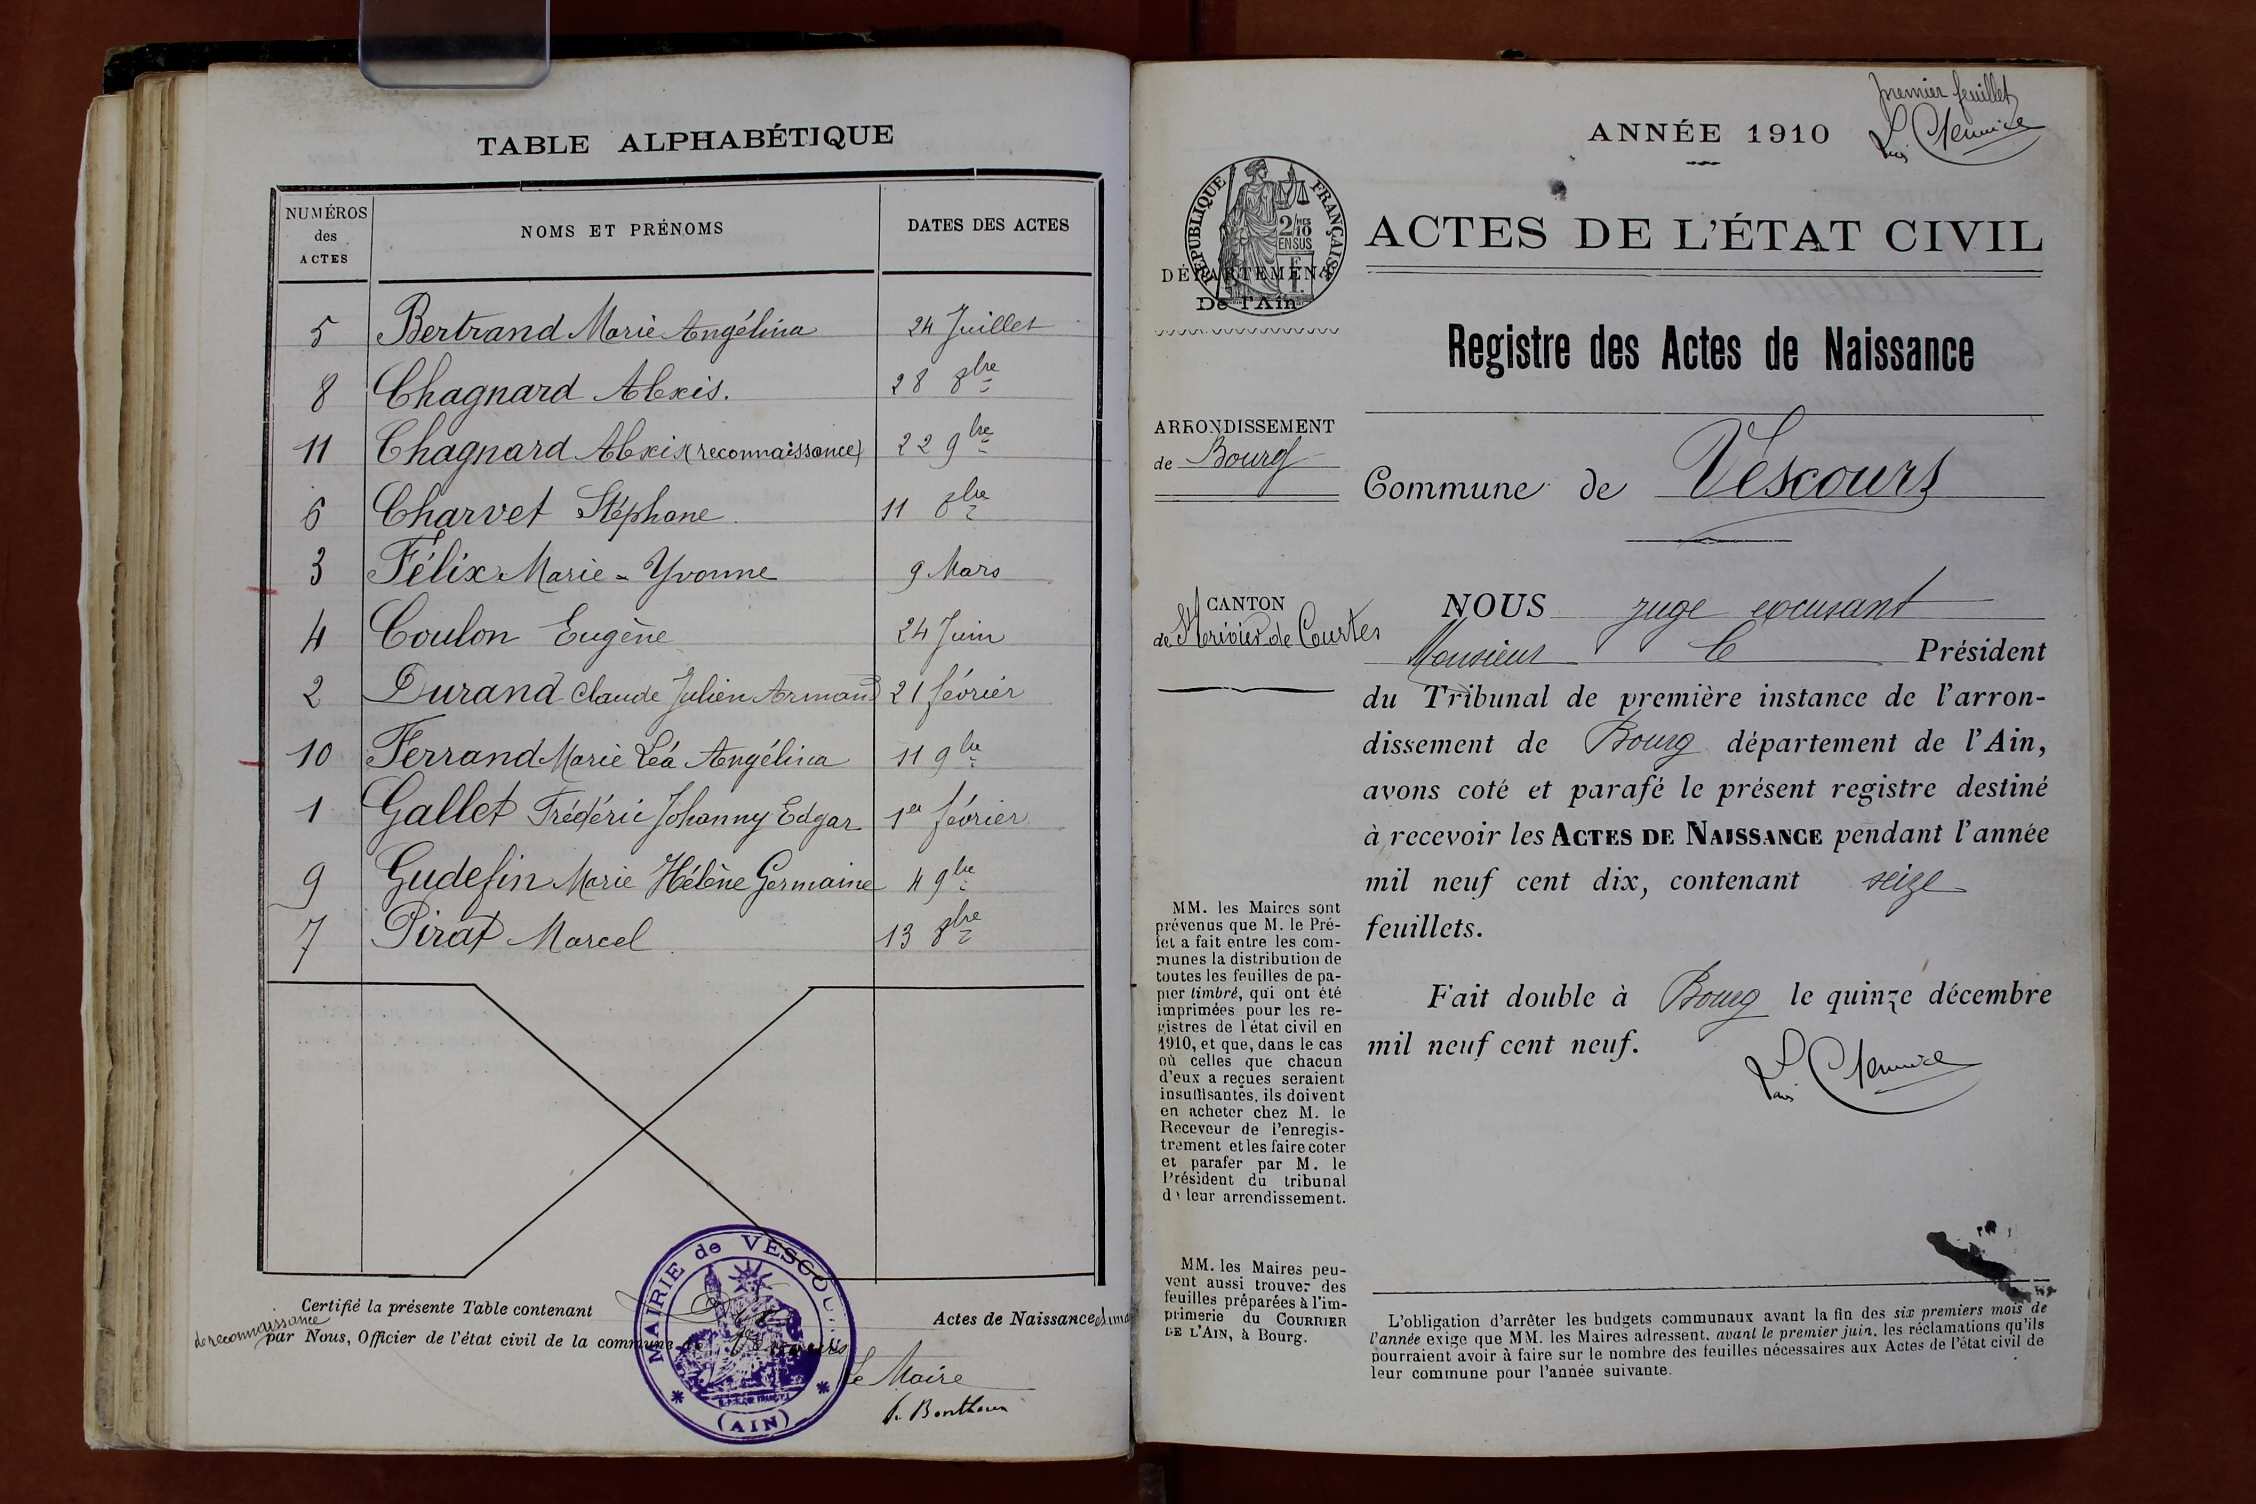 TABLE ALPHABÉTIQUE
NUMÉROS des ACTES NOMS ET PRÉNOMS DATES DES ACTES
5 Bertrand Marie Angélina 24 Juillet
8 Chagnard Alexis. 28 8bre
11 Chagnard Alexis (reconnaissance) 22 9bre
6 Charvet Stéphane 11 8bre
3 Félix Marie-Yvonne 9 Mars
4 Coulon Eugène 24 Juin
2 Durand Claude Julien Armand 21 février
10 Ferrand Marie Léa Angélina 11 9bre
1 Gallet Frédéric Johanny Edgar 1er février
9 Gudefin Marie Hélène Germaine 4 9bre
7 Pirat Marcel 13 8bre
Certifié la présente Table contenant Actes de Naissance
de reconnaissance
par Nous, Officier de l'état civil de la commune de Vescours
MAIRIE de VESCOURS
(AIN)
Le Maire
premier feuillet
ANNÉE 1910
RÉPUBLIQUE FRANÇAISE
2/10 EN SUS
DÉPARTEMENT
De l'Ain
ACTES DE L'ÉTAT CIVIL
Registre des Actes de Naissance
ARRONDISSEMENT
de Bourg
Commune de Vescours
CANTON
de St Trivier de Courtes
NOUS juge excusant
Monsieur le Président
du Tribunal de première instance de l'arron-
dissement de Bourg département de l'Ain,
avons coté et parafé le présent registre destiné
à recevoir les ACTES DE NAISSANCE pendant l'année
mil neuf cent dix, contenant seize
feuillets.
Fait double à Bourg le quinze décembre
mil neuf cent neuf.
MM. les Maires sont
prévenus que M. le Pré-
fet a fait entre les com-
munes la distribution de
toutes les feuilles de pa-
pier timbré, qui ont été
imprimées pour les re-
gistres de l'état civil en
1910, et que, dans le cas
où celles que chacun
d'eux a reçues seraient
insuffisantes, ils doivent
en acheter chez M. le
Receveur de l'enregis-
trement et les faire coter
et parafer par M. le
Président du tribunal
de leur arrondissement.
MM. les Maires peu-
vent aussi trouver des
feuilles préparées à l'im-
primerie du COURRIER
DE L'AIN, à Bourg.
L'obligation d'arrêter les budgets communaux avant la fin des six premiers mois de
l'année exige que MM. les Maires adressent, avant le premier juin, les réclamations qu'ils
pourraient avoir à faire sur le nombre des feuilles nécessaires aux Actes de l'état civil de
leur commune pour l'année suivante.